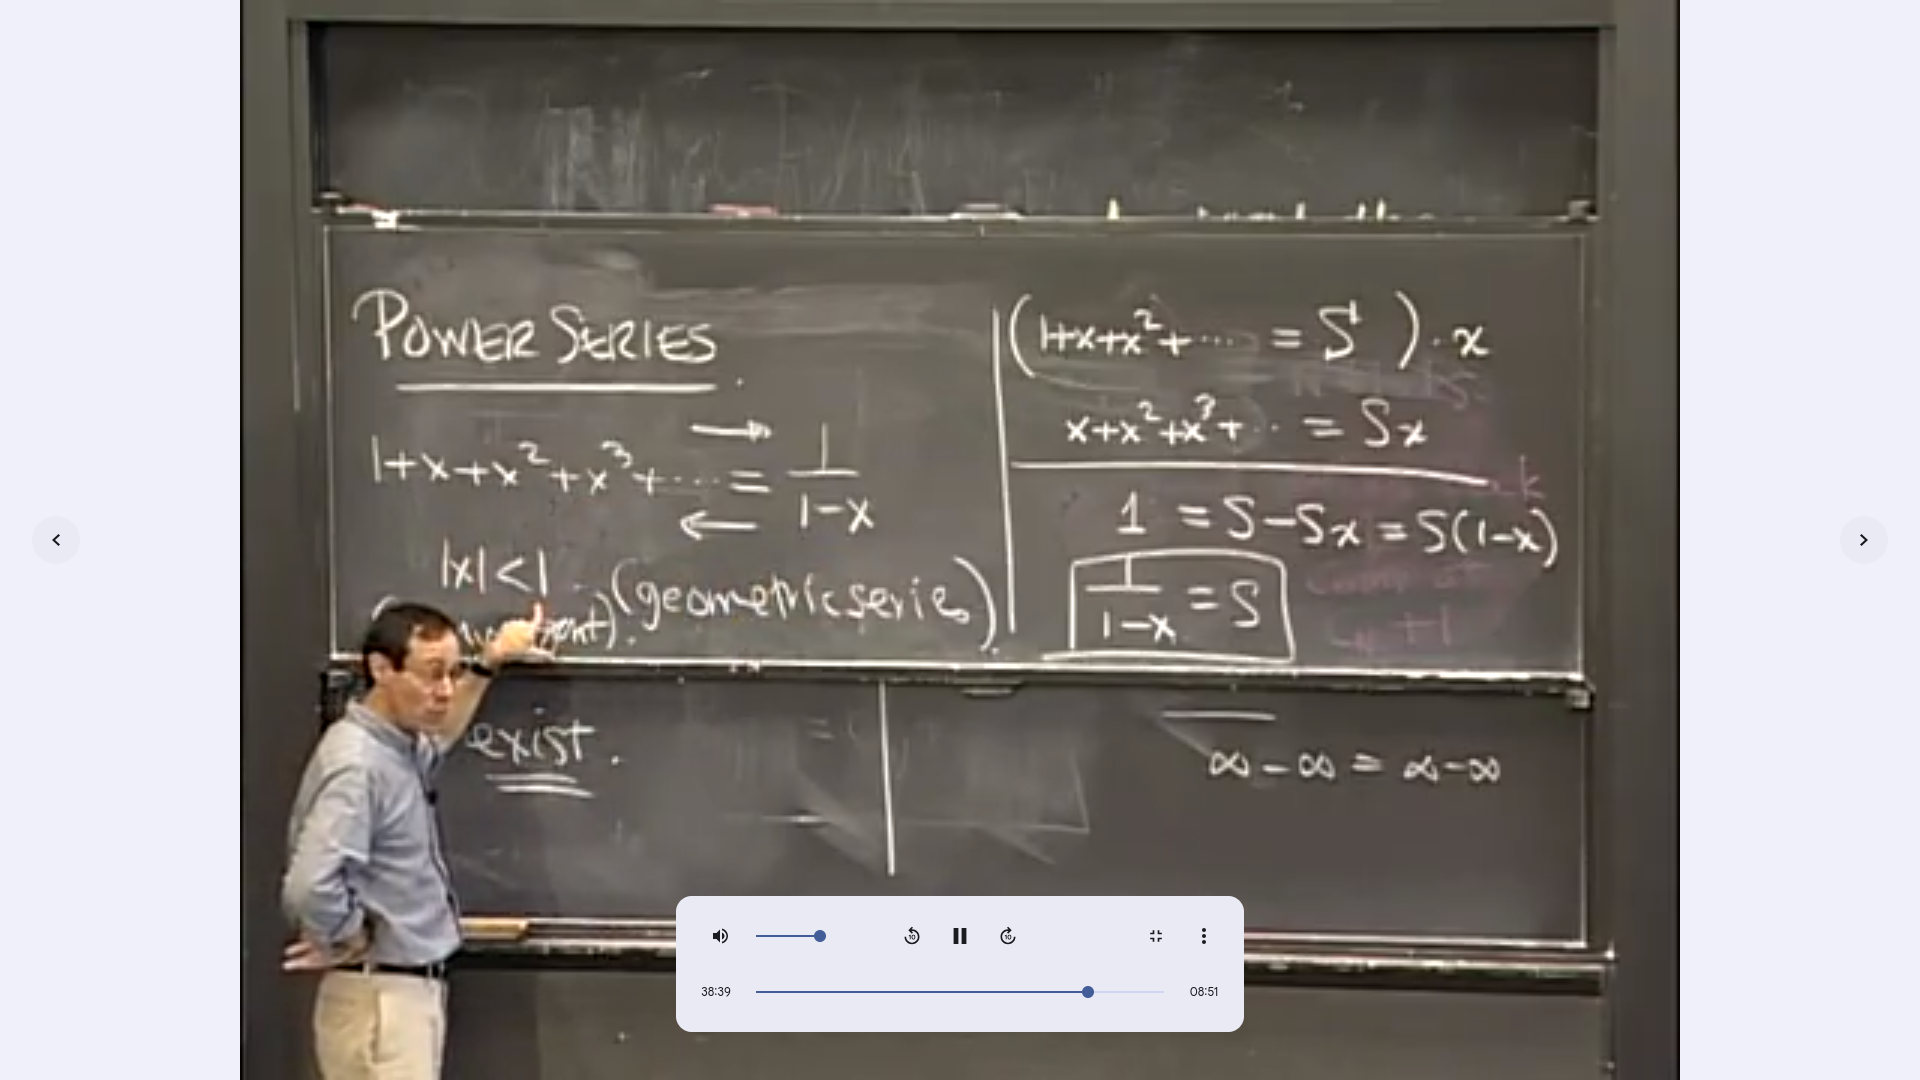 POWER SERIES
1+x+x²+x³+⋯ = 1/(1-x)
→
←
|x|<1
(geometric series).
(1+x+x²+⋯ = S)·x
x+x²+x³+⋯ = Sx
1 = S-Sx = S(1-x)
1/(1-x) = S
exist.
∞-∞ = ∞-∞
10
10
38:39
08:51